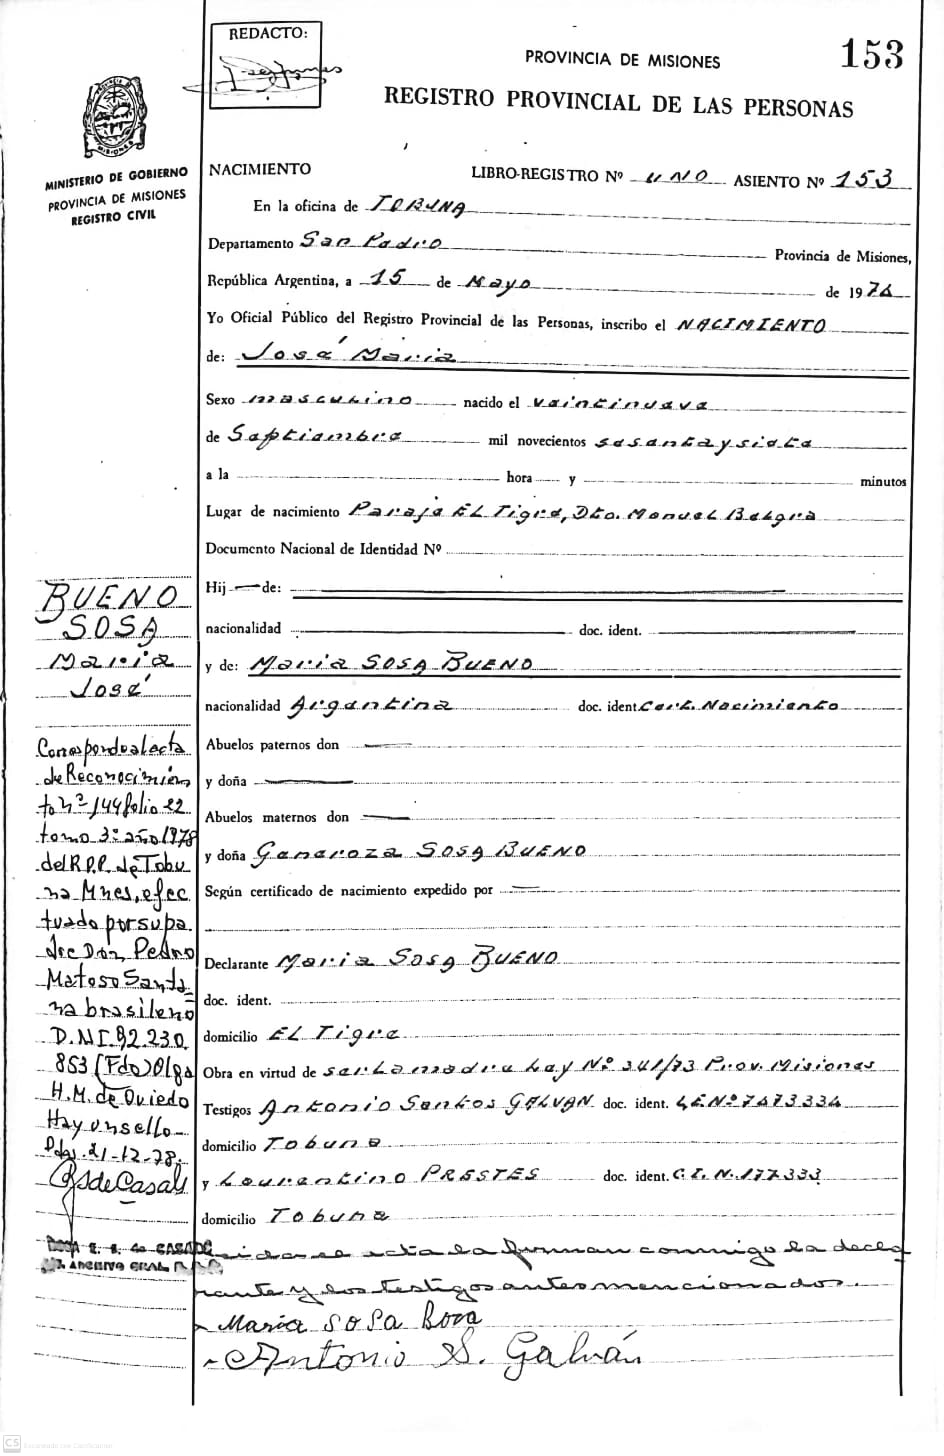 REDACTO:
PROVINCIA DE MISIONES
153
REGISTRO PROVINCIAL DE LAS PERSONAS
MISIONES
MINISTERIO DE GOBIERNO
PROVINCIA DE MISIONES
REGISTRO CIVIL
NACIMIENTO LIBRO-REGISTRO Nº uno ASIENTO Nº 153
En la oficina de TOBUNA
Departamento San Pedro Provincia de Misiones,
República Argentina, a 15 de Mayo de 1974
Yo Oficial Público del Registro Provincial de las Personas, inscribo el NACIMIENTO
de: José Maria
Sexo masculino nacido el veintinueve
de Septiembre mil novecientos sesenta y siete
a la hora y minutos
Lugar de nacimiento Paraje EL Tigre, Dto. Manuel Belgra
Documento Nacional de Identidad Nº
Hij de:
nacionalidad doc. ident.
y de: Maria SOSA BUENO
nacionalidad Argentina doc. ident. Cert. Nacimiento
Abuelos paternos don
y doña
Abuelos maternos don
y doña Genaroza SOSA BUENO
Según certificado de nacimiento expedido por
Declarante Maria Sosa BUENO
doc. ident.
domicilio EL Tigre
Obra en virtud de ser la madre Ley Nº 341/73 Prov. Misiones
Testigos Antonio Santos GALVAN doc. ident. LE Nº 7473334
domicilio Tobuna
y Laurentino PRESTES doc. ident. C.I. N. 177.333
domicilio Tobuna
Leida el acta la firman conmigo la decla
rante y los testigos antes mencionados.
Maria SOSA Bova
Antonio S. Galván
BUENO
SOSA
Maria
José
Corresponde al acta
de Reconocimien
to nº 144 folio 22
tomo 3º año 1978
del R.P.P. de Tobu
na Mnes, efec
tuado por su pa
dre Don Pedro
Matoso Santa
na brasileño
D.N.I. 92.230.
853 (Fdo) Olga
H.M. de Oviedo
Hay un sello
Pdas. 21-12-78.
de Casals
CS